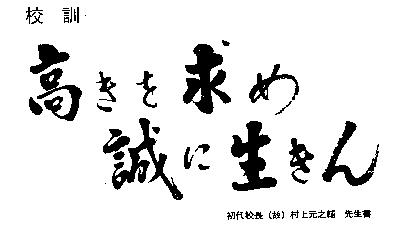 校訓
高きを求め
誠に生きん
初代校長(故)村上元之輔 先生書